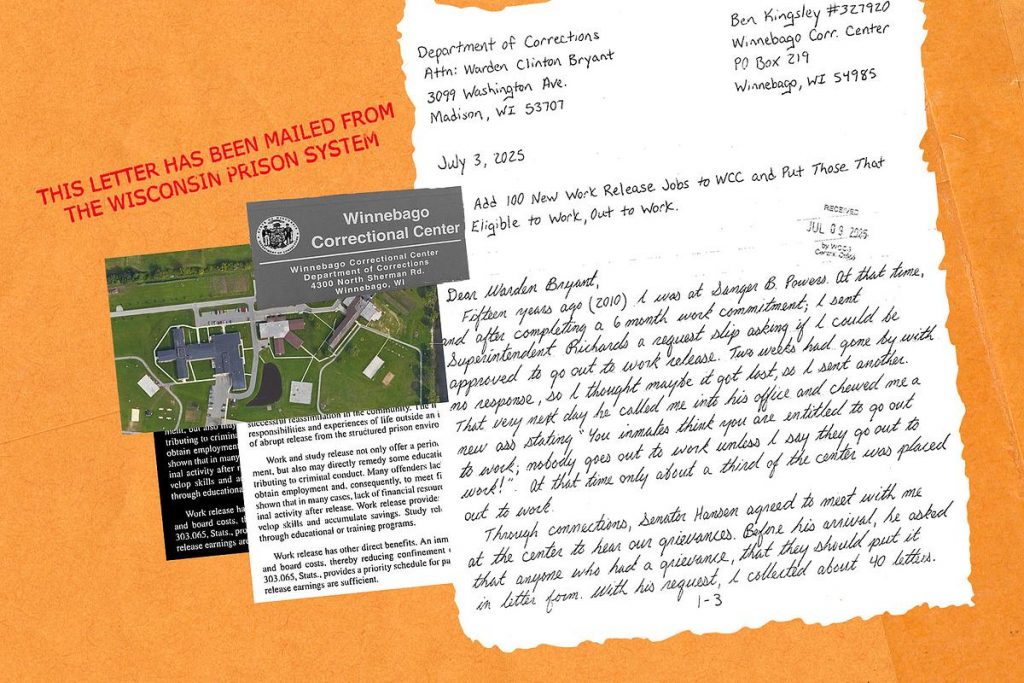 THIS LETTER HAS BEEN MAILED FROM
THE WISCONSIN PRISON SYSTEM
Winnebago
Correctional Center
Winnebago Correctional Center
Department of Corrections
4300 North Sherman Rd.
Winnebago, WI
Department of Corrections
Attn: Warden Clinton Bryant
3099 Washington Ave.
Madison, WI 53707
Ben Kingsley #327920
Winnebago Corr. Center
PO Box 219
Winnebago, WI 54985
July 3, 2025
Add 100 New Work Release Jobs to WCC and Put Those That
Eligible to Work, Out to Work.
RECEIVED
JUL 09 2025
Dear Warden Bryant,
Fifteen years ago (2010) I was at Sanger B. Powers. At that time,
and after completing a 6 month work commitment; I sent
Superintendent Richards a request slip asking if I could be
approved to go out to work release. Two weeks had gone by with
no response, so I thought maybe it got lost, so I sent another.
That very next day he called me into his office and chewed me a
new ass stating "You inmates think you are entitled to go out
to work; nobody goes out to work unless I say they go out to
work!". At that time only about a third of the center was placed
out to work.
Through connections, Senator Hansen agreed to meet with me
at the center to hear our grievances. Before his arrival, he asked
that anyone who had a grievance, that they should put it
in letter form. With his request, I collected about 40 letters.
1-3
successful reassimilation in the community. The
responsibilities and experiences of life outside an
of abrupt release from the structured prison enviro
Work and study release not only offer a perio
ment, but also may directly remedy some educati
tributing to criminal conduct. Many offenders lac
obtain employment and, consequently, to meet fi
shown that in many cases, lack of financial resour
inal activity after release. Work release provide
velop skills and accumulate savings. Study rel
through educational or training programs.
Work release has other direct benefits. An inm
and board costs, thereby reducing confinement
303.065, Stats., provides a priority schedule for pa
release earnings are sufficient.
ment, but also may
tributing to criminal
obtain employment
shown that in many
inal activity after r
velop skills and a
through educationa
Work release ha
and board costs, th
303.065, Stats., prov
release earnings are